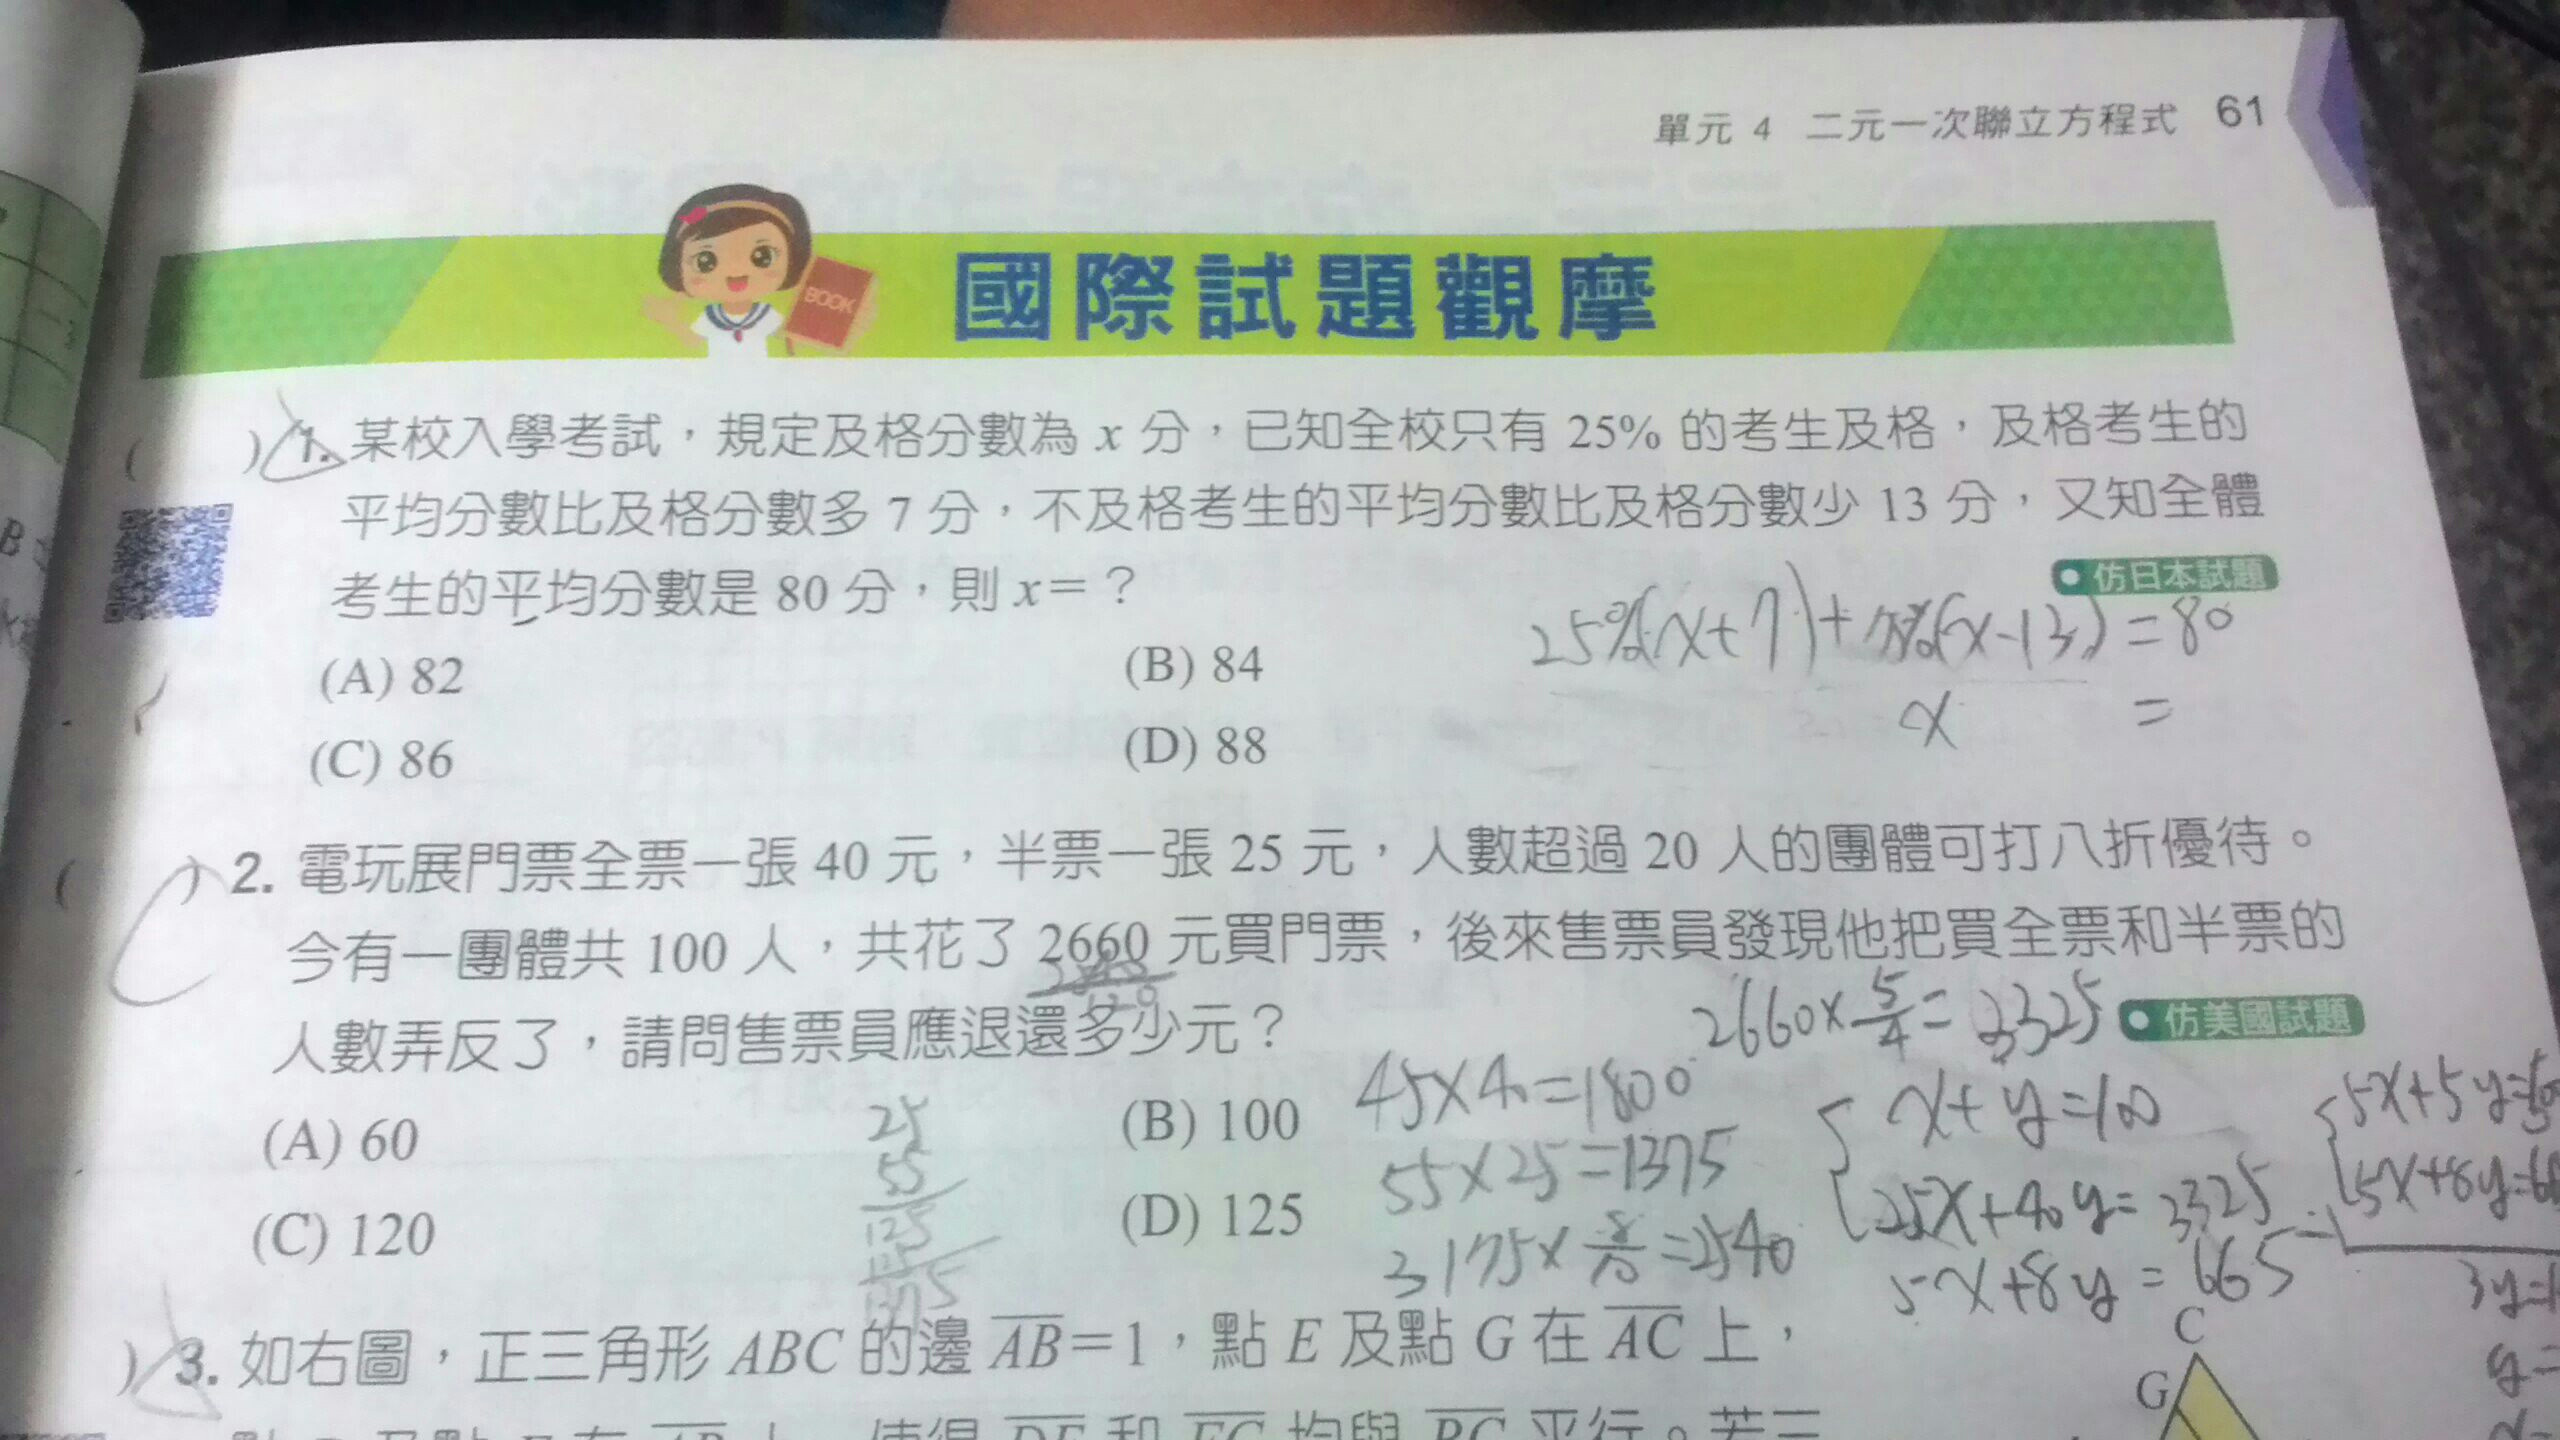 單元 4 二元一次聯立方程式 61
BOOK
國際試題觀摩
( ) 1. 某校入學考試，規定及格分數為 x 分，已知全校只有 25% 的考生及格，及格考生的
平均分數比及格分數多 7 分，不及格考生的平均分數比及格分數少 13 分，又知全體
考生的平均分數是 80 分，則 x=？
仿日本試題
25%(x+7)+75%(x-13)=80
x =
(A) 82 (B) 84
(C) 86 (D) 88
( ) 2. 電玩展門票全票一張 40 元，半票一張 25 元，人數超過 20 人的團體可打八折優待。
今有一團體共 100 人，共花了 2660 元買門票，後來售票員發現他把買全票和半票的
人數弄反了，請問售票員應退還多少元？
2660×5/4=3325
仿美國試題
(A) 60 (B) 100
(C) 120 (D) 125
45×40=1800
55×25=1375
3175×8/10=2540
x+y=100
25x+40y=3325
5x+8y=665
25
55
125
125
1375
) 3. 如右圖，正三角形 ABC 的邊 AB=1，點 E 及點 G 在 AC 上，
C
G